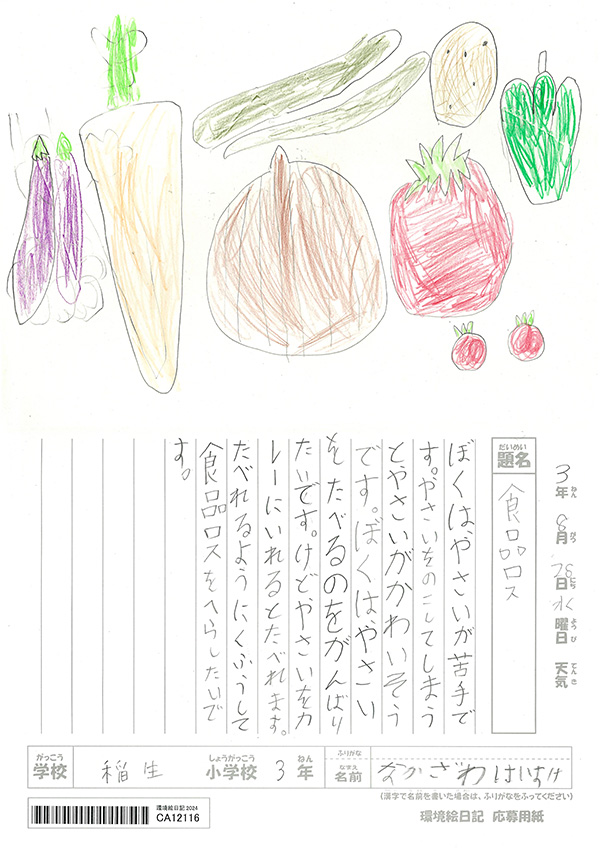 3年ねん 8月がつ 28日にち 水曜日ようび 天気てんき
題名だいめい
食品ロス
ぼくはやさいが苦手で
す。やさいをのこしてしまう
とやさいがかわいそう
です。ぼくはやさい
をたべるのをがんばり
たいです。けどやさいをカ
レーにいれるとたべれます。
たべれるようにくふうして
食品ロスをへらしたいで
す。
学校がっこう 稲生 小学校しょうがっこう 3 年ねん ふりがな 名前なまえ なかざわ
(漢字で名前を書いた場合は、ふりがなをふってください)
環境絵日記2024
CA12116
環境絵日記 応募用紙